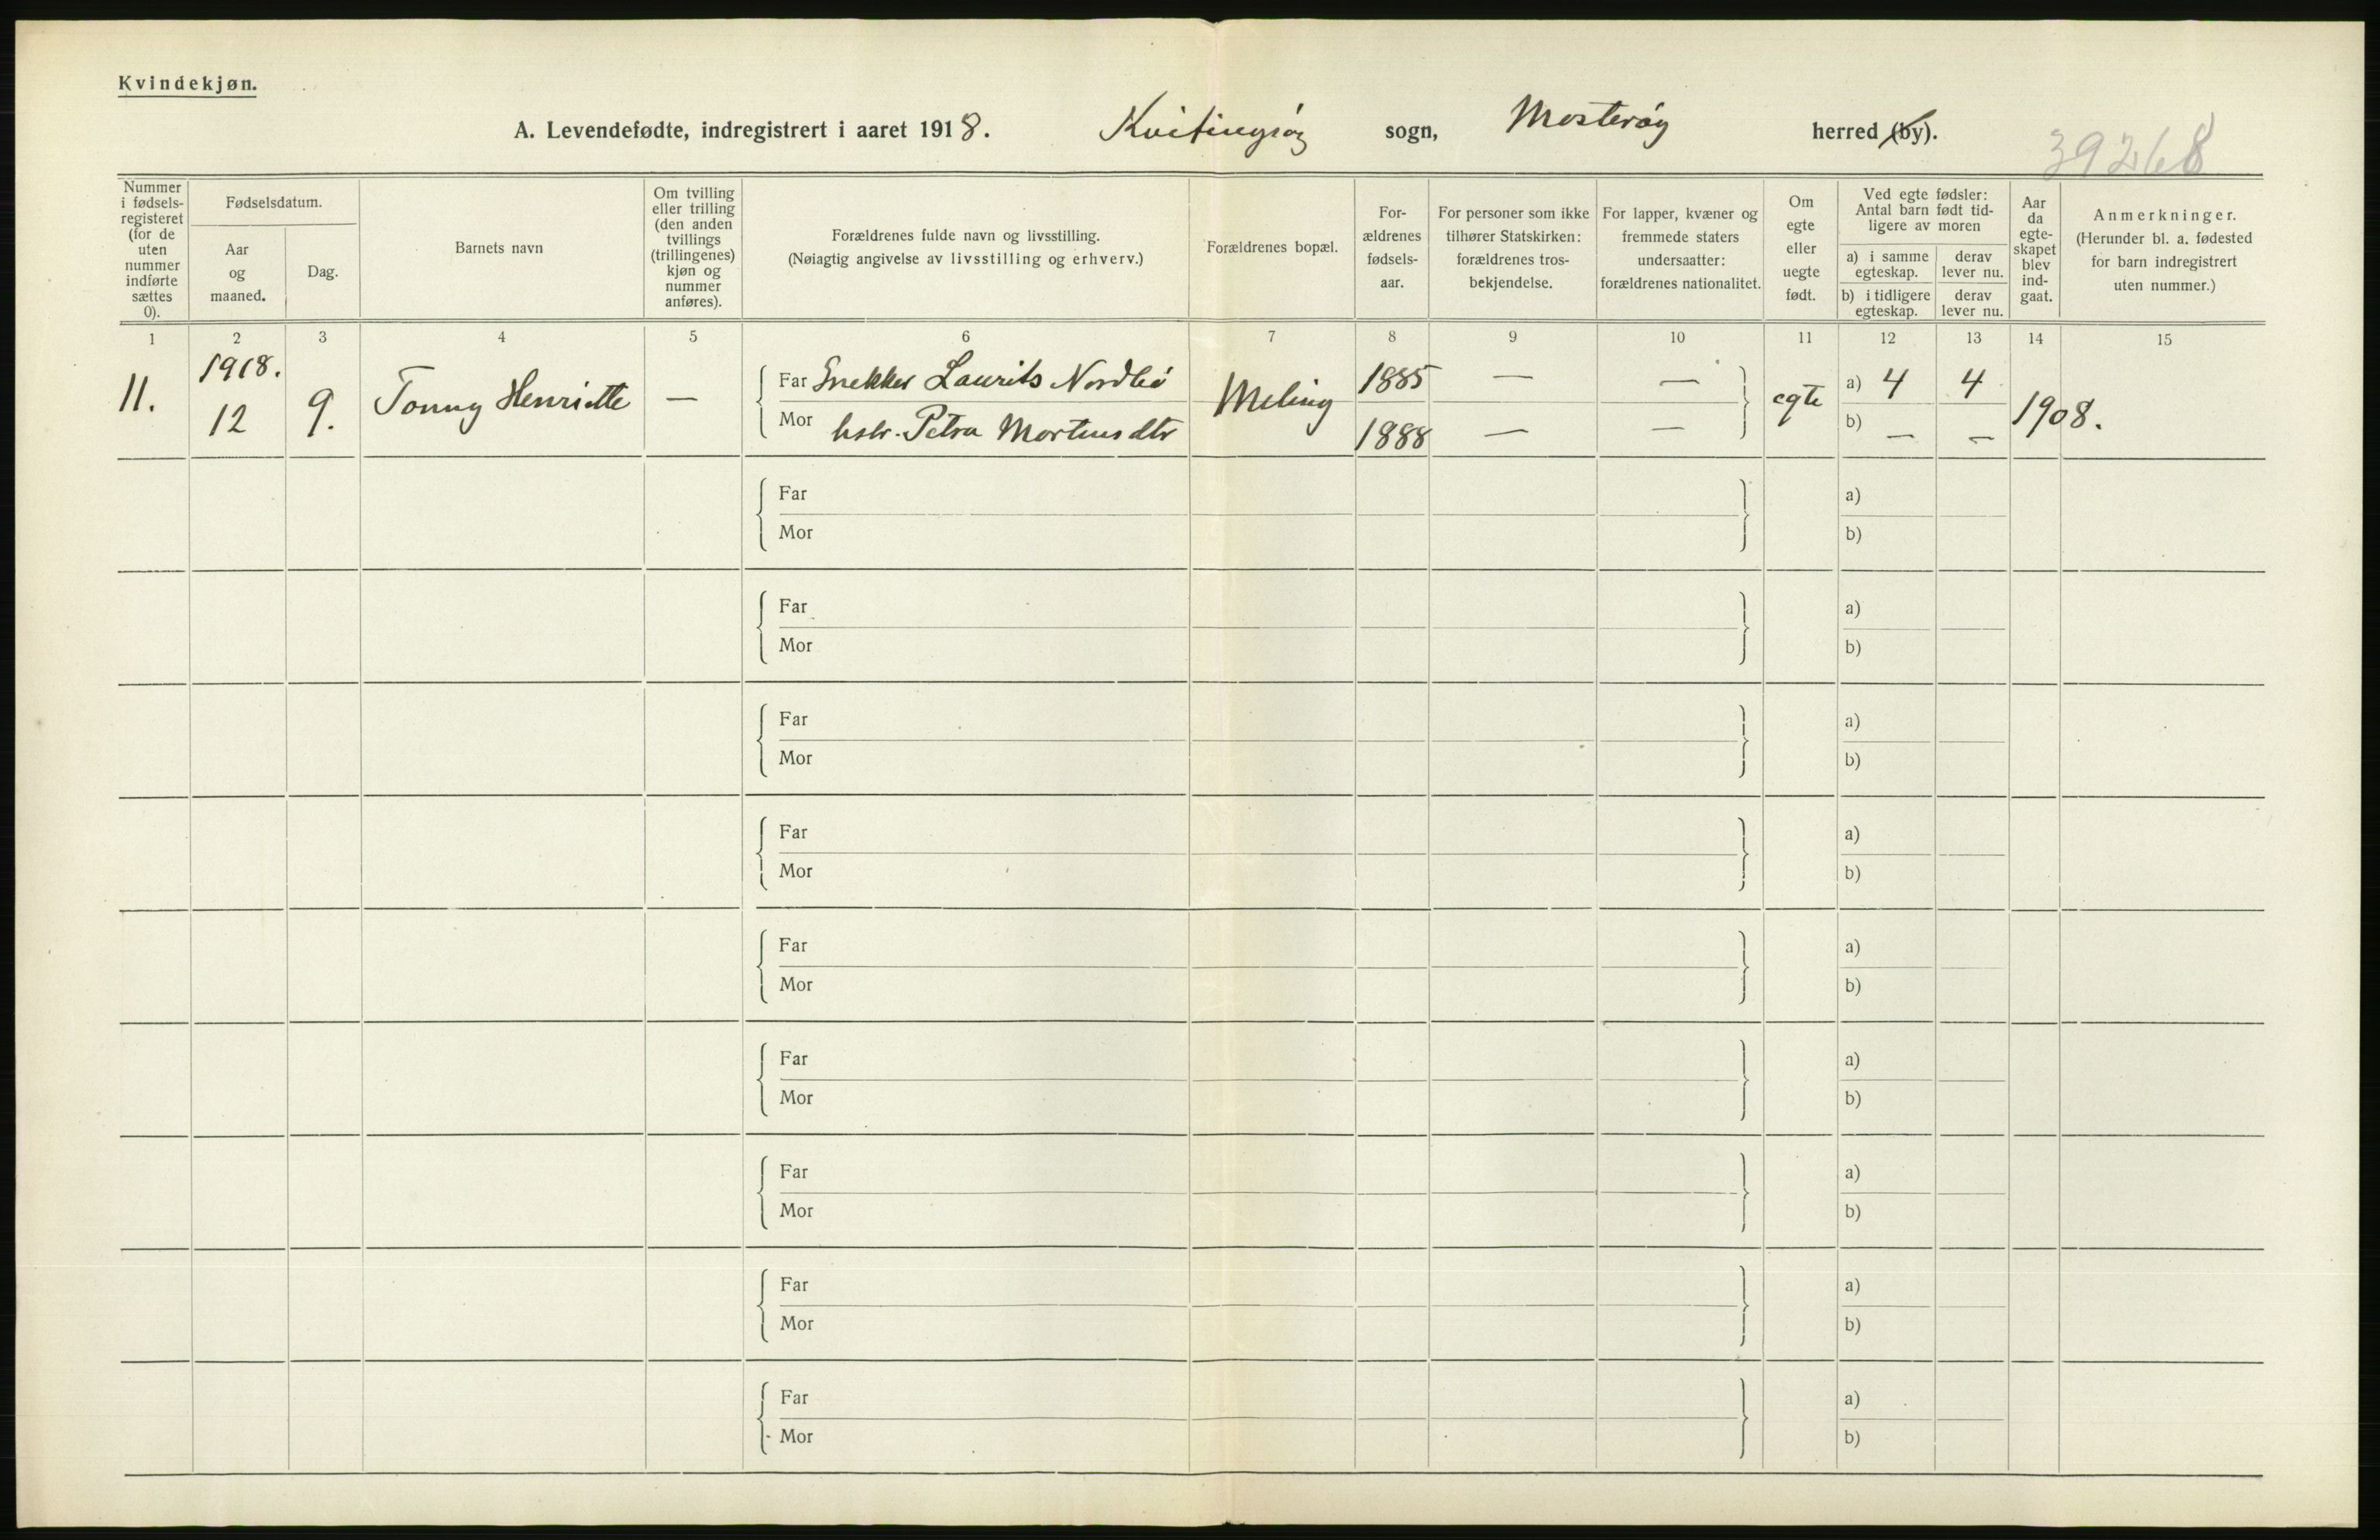 Kvindekjøn.
A. Levendefødte, indregistrert i aaret 1918. Kvitingsøy sogn, Mosterøy herred (by).
39268
Nummer i fødsels-registeret (for de uten nummer indførte sættes 0).
Fødselsdatum.
Aar og maaned.
Dag.
Barnets navn
Om tvilling eller trilling (den anden tvillings (trillingenes) kjøn og nummer anføres).
Forældrenes fulde navn og livsstilling.
(Nøiagtig angivelse av livsstilling og erhverv.)
Forældrenes bopæl.
For-ældrenes fødsels-aar.
For personer som ikke tilhører Statskirken: forældrenes tros-bekjendelse.
For lapper, kvæner og fremmede staters undersaatter: forældrenes nationalitet.
Om egte eller uegte født.
Ved egte fødsler: Antal barn født tid-ligere av moren
a) i samme egteskap.
derav lever nu.
b) i tidligere egteskap.
derav lever nu.
Aar da egte-skapet blev ind-gaat.
Anmerkninger.
(Herunder bl. a. fødested for barn indregistrert uten nummer.)
1 2 3 4 5 6 7 8 9 10 11 12 13 14 15
11. 1918. 12 9. Tonny Henriette — Far Snekker Laurits Nordbø Meling 1885 — — egte a) 4 4 1908.
Mor hstr. Petra Mortensdtr 1888 — — b) — —
Far a)
Mor b)
Far a)
Mor b)
Far a)
Mor b)
Far a)
Mor b)
Far a)
Mor b)
Far a)
Mor b)
Far a)
Mor b)
Far a)
Mor b)
Far a)
Mor b)